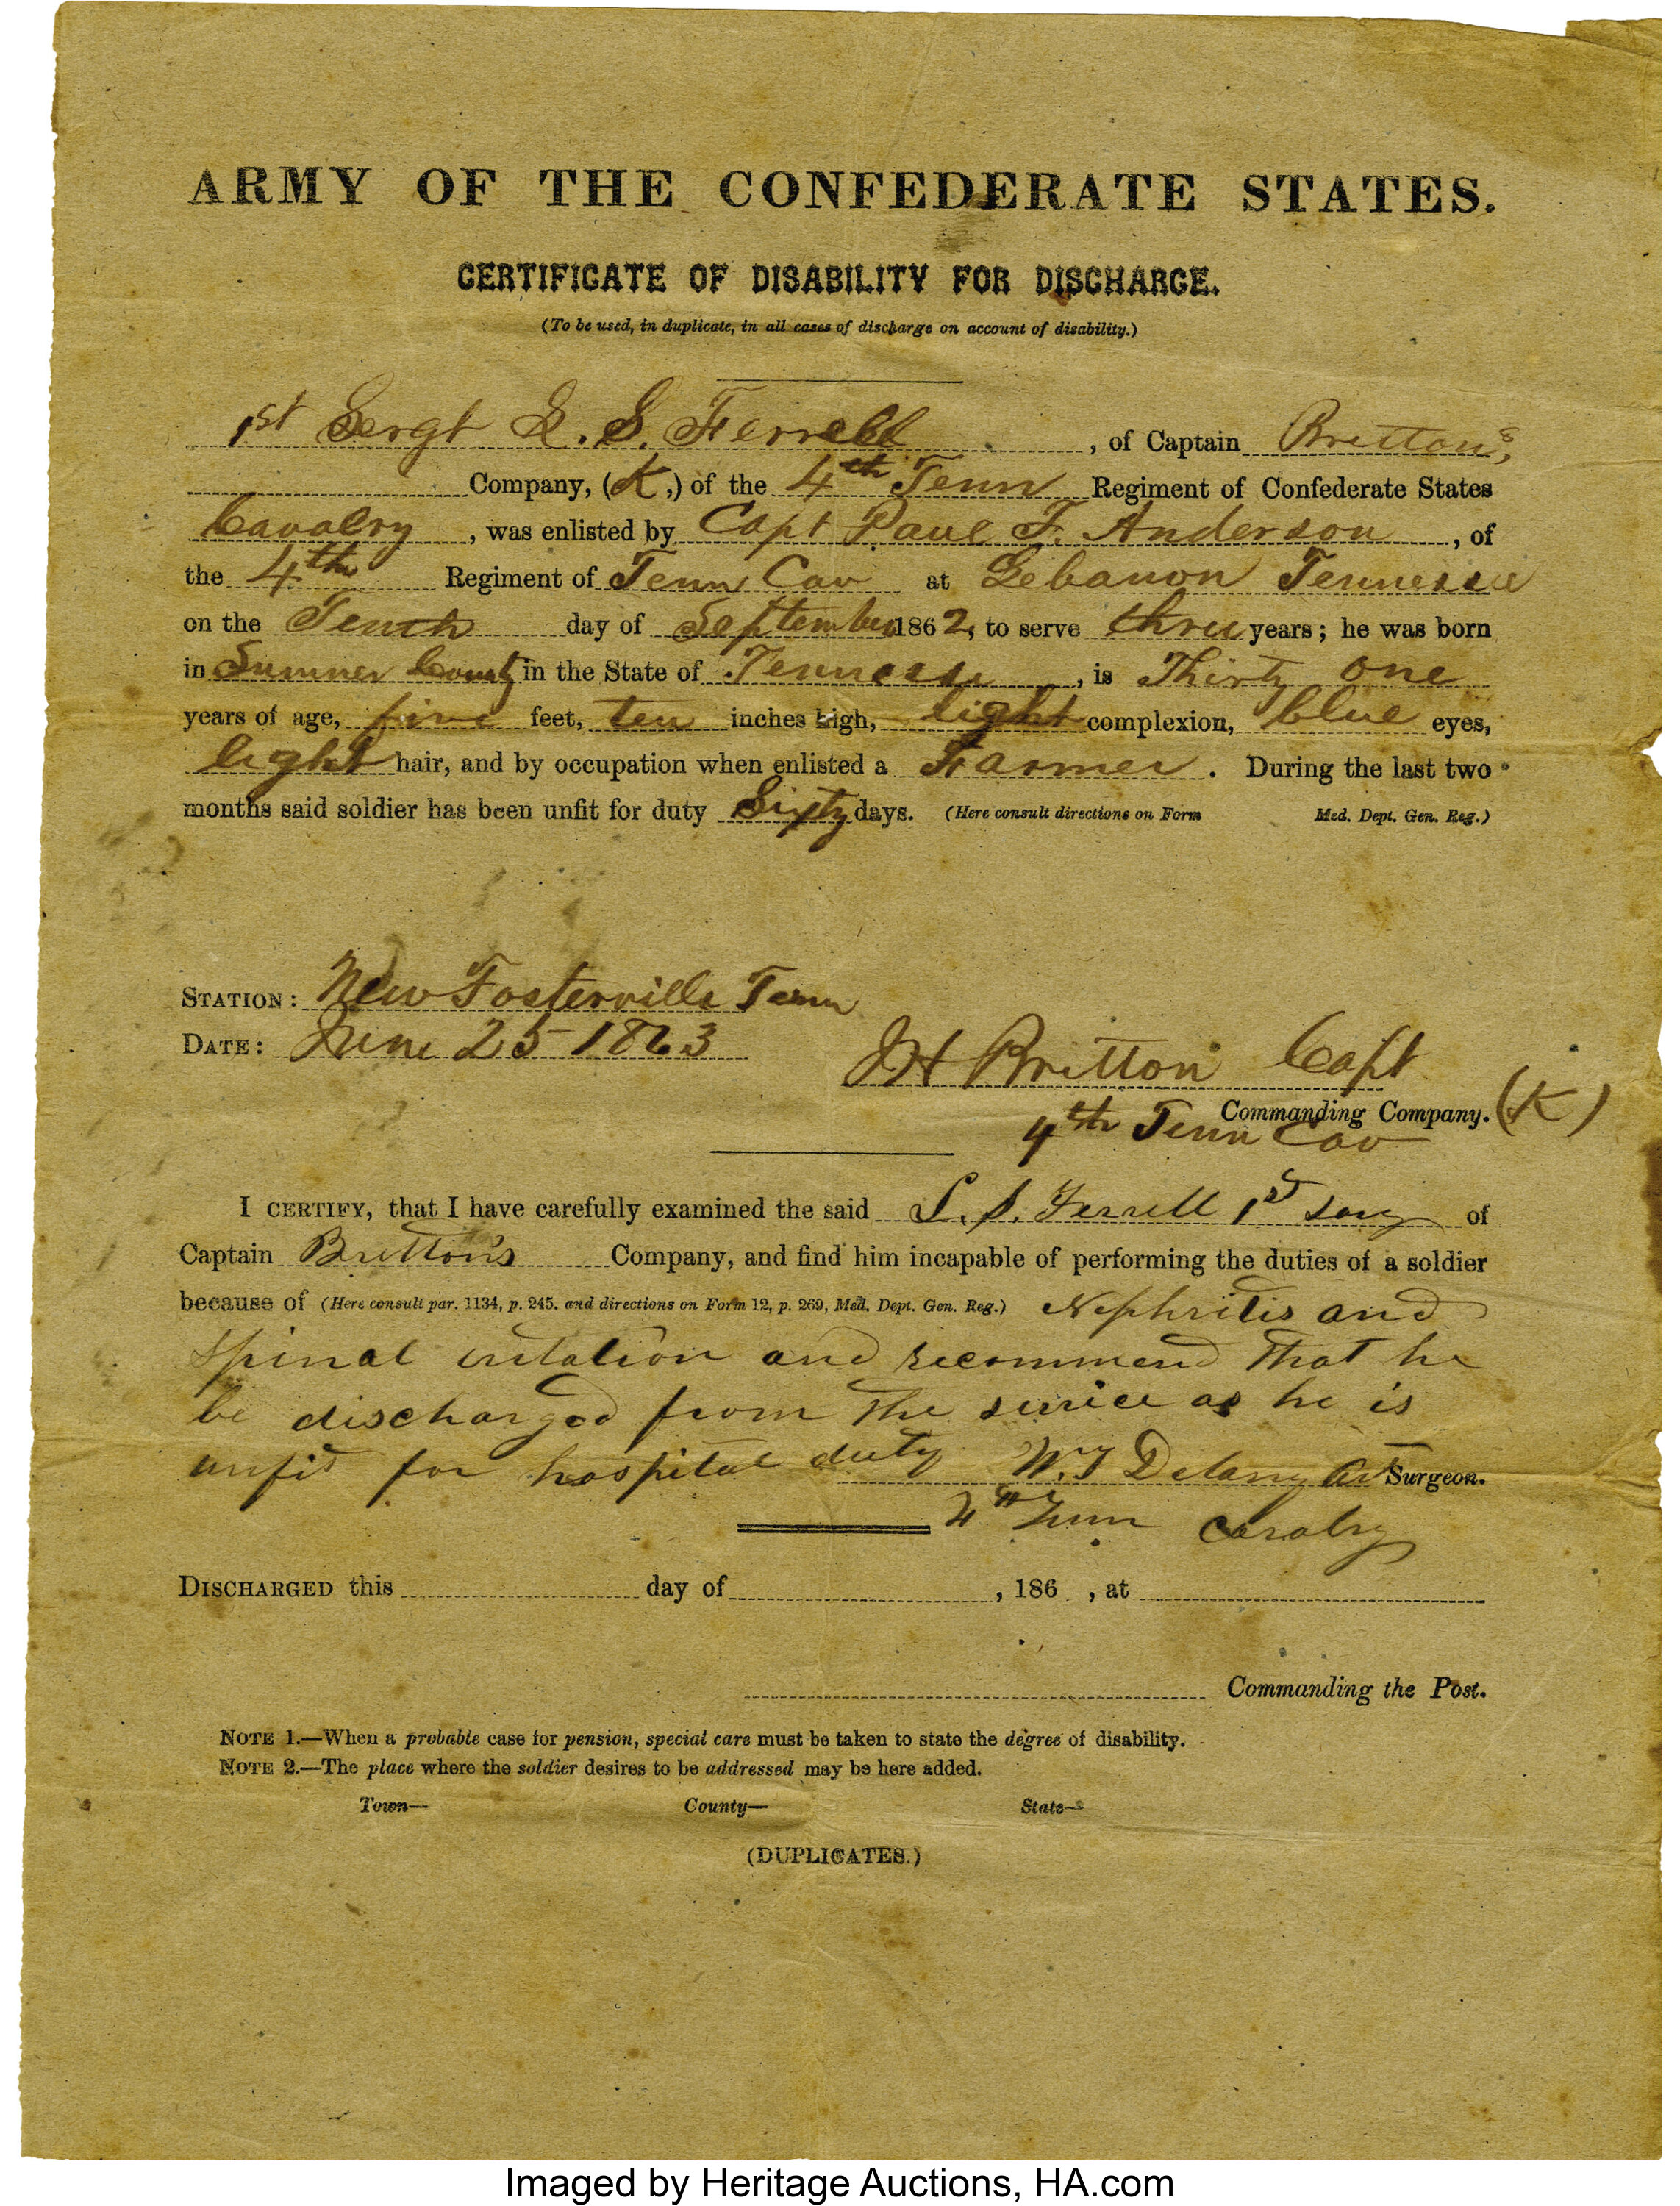 ARMY OF THE CONFEDERATE STATES.
CERTIFICATE OF DISABILITY FOR DISCHARGE.
(To be used, in duplicate, in all cases of discharge on account of disability.)
1st Sergt L. S. Ferrell, of Captain Britton's,
Company, (K,) of the 4th Tenn Regiment of Confederate States
Cavalry, was enlisted by Capt Paul F. Anderson, of
the 4th Regiment of Tenn Cav at Lebanon Tennessee
on the Tenth day of September 1862, to serve three years; he was born
in Sumner County in the State of Tennessee, is Thirty one
years of age, five feet, ten inches high, light complexion, blue eyes,
light hair, and by occupation when enlisted a Farmer. During the last two
months said soldier has been unfit for duty Sixty days. (Here consult directions on Form Med. Dept. Gen. Reg.)
STATION: New Fosterville Tenn
DATE: June 25 1863
JH Britton Capt
Commanding Company. (K)
4th Tenn Cav
I CERTIFY, that I have carefully examined the said L. S. Ferrell 1st Serg of
Captain Britton's Company, and find him incapable of performing the duties of a soldier
because of (Here consult par. 1134, p. 245. and directions on Form 12, p. 269, Med. Dept. Gen. Reg.) Nephritis and
spinal iritation and recommend that he
be discharged from the service as he is
unfit for hospital duty W. T. Delany Ast Surgeon.
4th Tenn Cavalry
DISCHARGED this day of , 186 , at
Commanding the Post.
NOTE 1.—When a probable case for pension, special care must be taken to state the degree of disability.
NOTE 2.—The place where the soldier desires to be addressed may be here added.
Town— County— State—
(DUPLICATES.)
Imaged by Heritage Auctions, HA.com